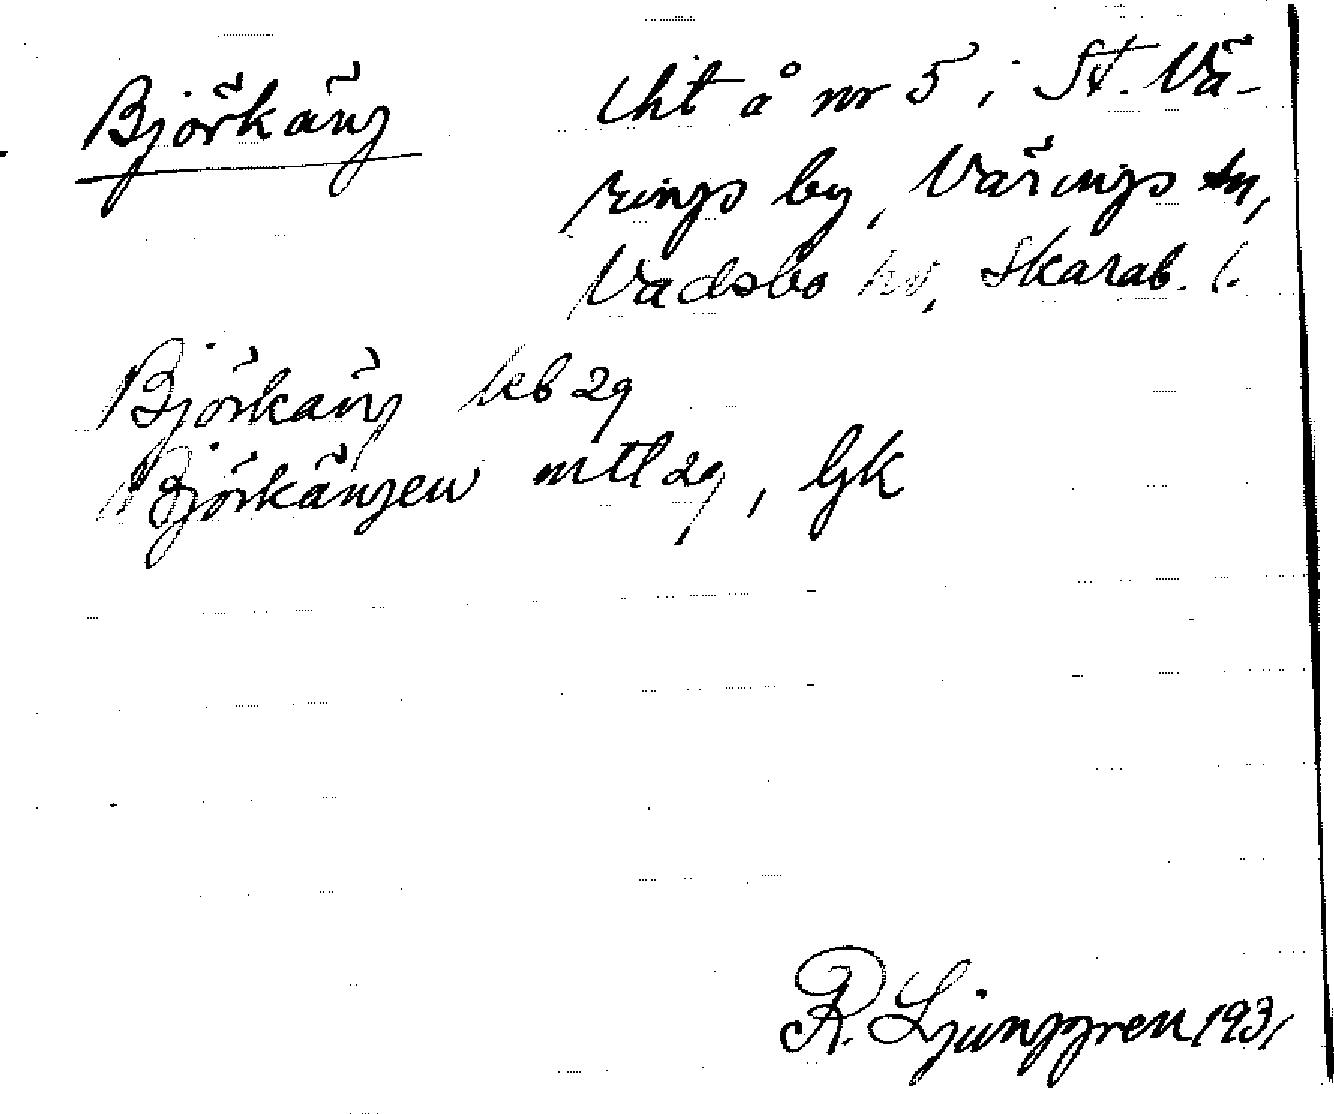 Björkäng lht å nr 5 i St. Vä-
rings by, Värings sn,
Vadsbo hd, Skarab. l.
Björkäng leb 29
Björkängen mtl 29, Gk
R. Ljunggren 1931